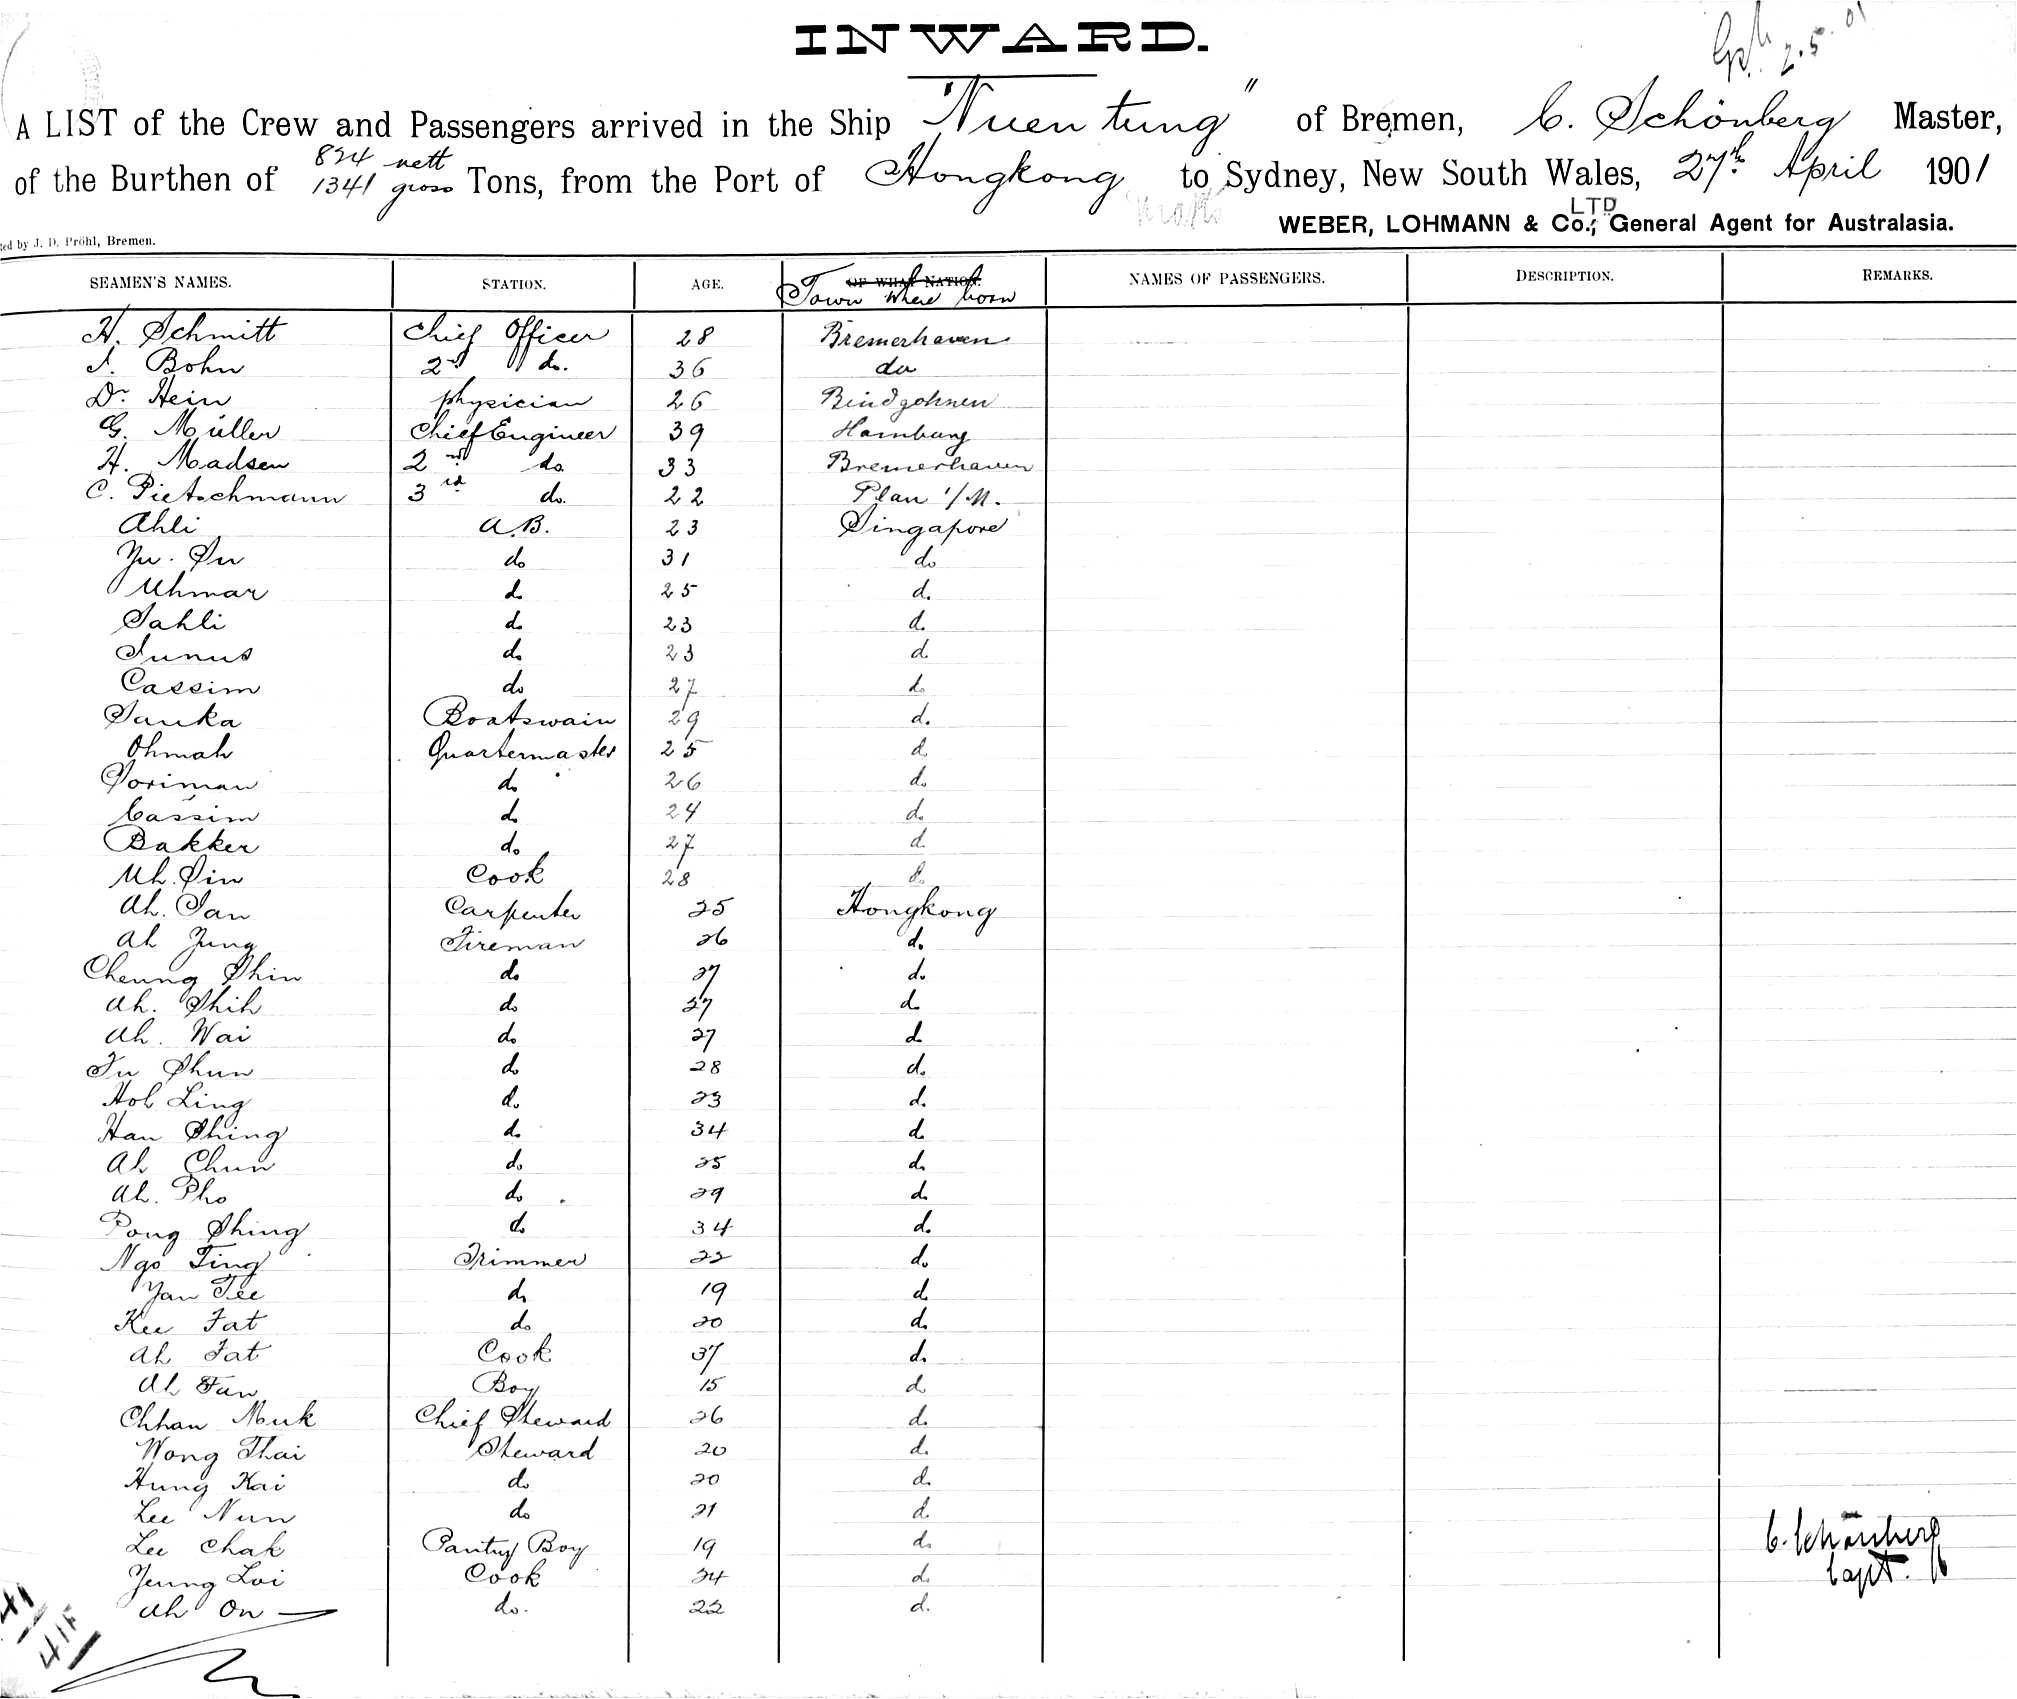 INWARD.
2.5.01
A LIST of the Crew and Passengers arrived in the Ship "Nuen tung" of Bremen, C. Schönberg Master,
of the Burthen of 824 nett 1341 gross Tons, from the Port of Hongkong to Sydney, New South Wales, 27th April 1901
WEBER, LOHMANN & Co., LTD General Agent for Australasia.
ted by J. D. Pröhl, Bremen.
SEAMEN'S NAMES. STATION. AGE. OF WHAT NATION. Town where born NAMES OF PASSENGERS. DESCRIPTION. REMARKS.
H. Schmitt Chief Officer 28 Bremerhaven
Bohn 2nd do. 36 do
Dr. Hein physician 26
G. Müller Chief Engineer 39 Hamburg
H. Madsen 2nd do 33 Bremerhaven
C. Pietschmann 3rd do. 22 Plau i/M.
Ahli A.B. 23 Singapore
do 31 do
Uhmar do 25 do
Sahli do 23 do
Junus do 23 do
Cassim do 27 do
Sauka Boatswain 29 do
Ohmah Quartermaster 25 do
Soriman do 26 do
Cassim do 24 do
Bakker do 27 do
Uh. Sin Cook 28 do
Ah. San Carpenter 25 Hongkong
Ah Jung Fireman 26 do
Cheung Shin do 27 do
Ah. Shih do 27 do
Ah. Wai do 27 do
Fu Shun do 28 do
Hob Ling do 23 do
Han Shing do 34 do
Ah Chun do 25 do
Ah. Pho do 29 do
Pong Shing do 34 do
Ngo Ting Trimmer 22 do
Yan Tee do 19 do
Kee Fat do 20 do
Ah Fat Cook 37 do
Ah Fan Boy 15 do
Chhan Muk Chief Steward 26 do
Wong Thai Steward 20 do
Hung Kai do 20 do
Lee Nun do 21 do
Lee Chak Pantry Boy 19 do
Jeung Loi Cook 24 do
Ah On do. 22 do
C. Schönberg
Capt.
41
41